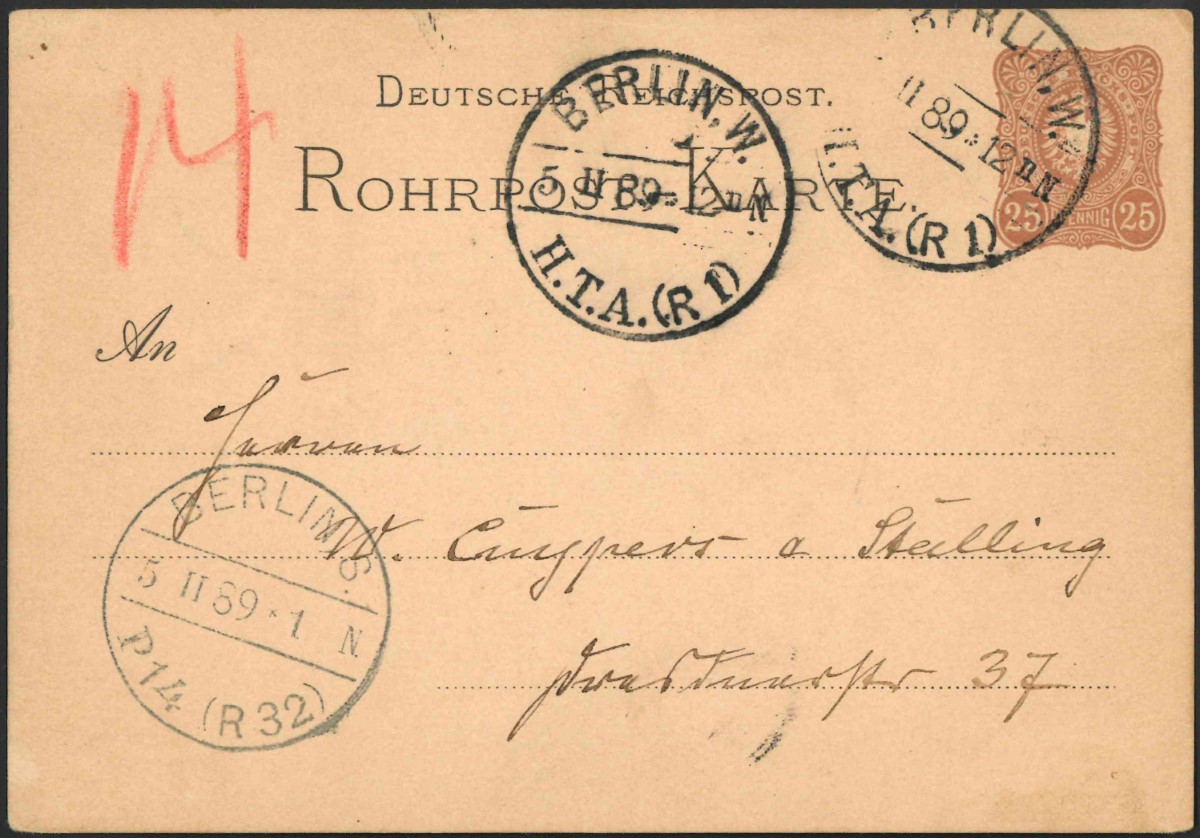 14
DEUTSCHE REICHSPOST.
ROHRPOST-KARTE.
BERLIN, W.
5 II 89 * 12 N
H.T.A. (R 1)
BERLIN, W.
II 89 * 12 N
H.T.A. (R 1)
25 PFENNIG 25
An
Herren
W. Cuypers & Stalling
Dresdnerstr 37
BERLIN S.
5 II 89 * 1 N
P 14 (R 32)